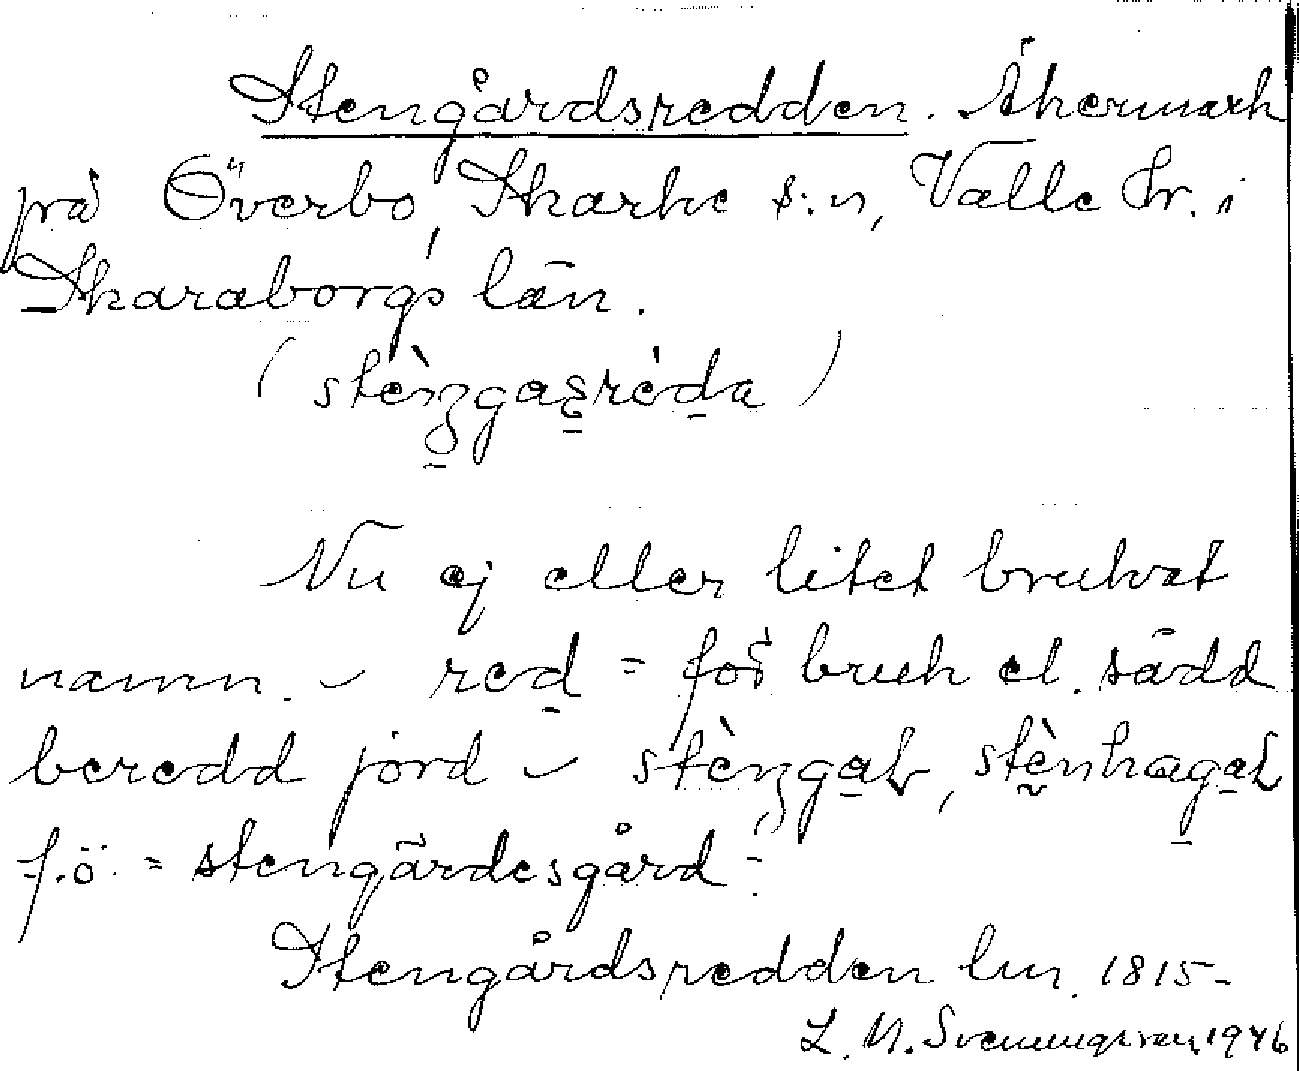 Stengårdsredden. Åkermark
på Överbo, Skarke s:n, Valle hr. i
Skaraborgs län.
(stènzgasréda)
Nu ej eller litet brukat
namn. – red = för bruk el. sådd
beredd jord – stènzgaL, stènhagaL
f.ö. = stengärdesgård –
Stengårdsredden lm. 1815 –
L. M. Svenungsson 1946